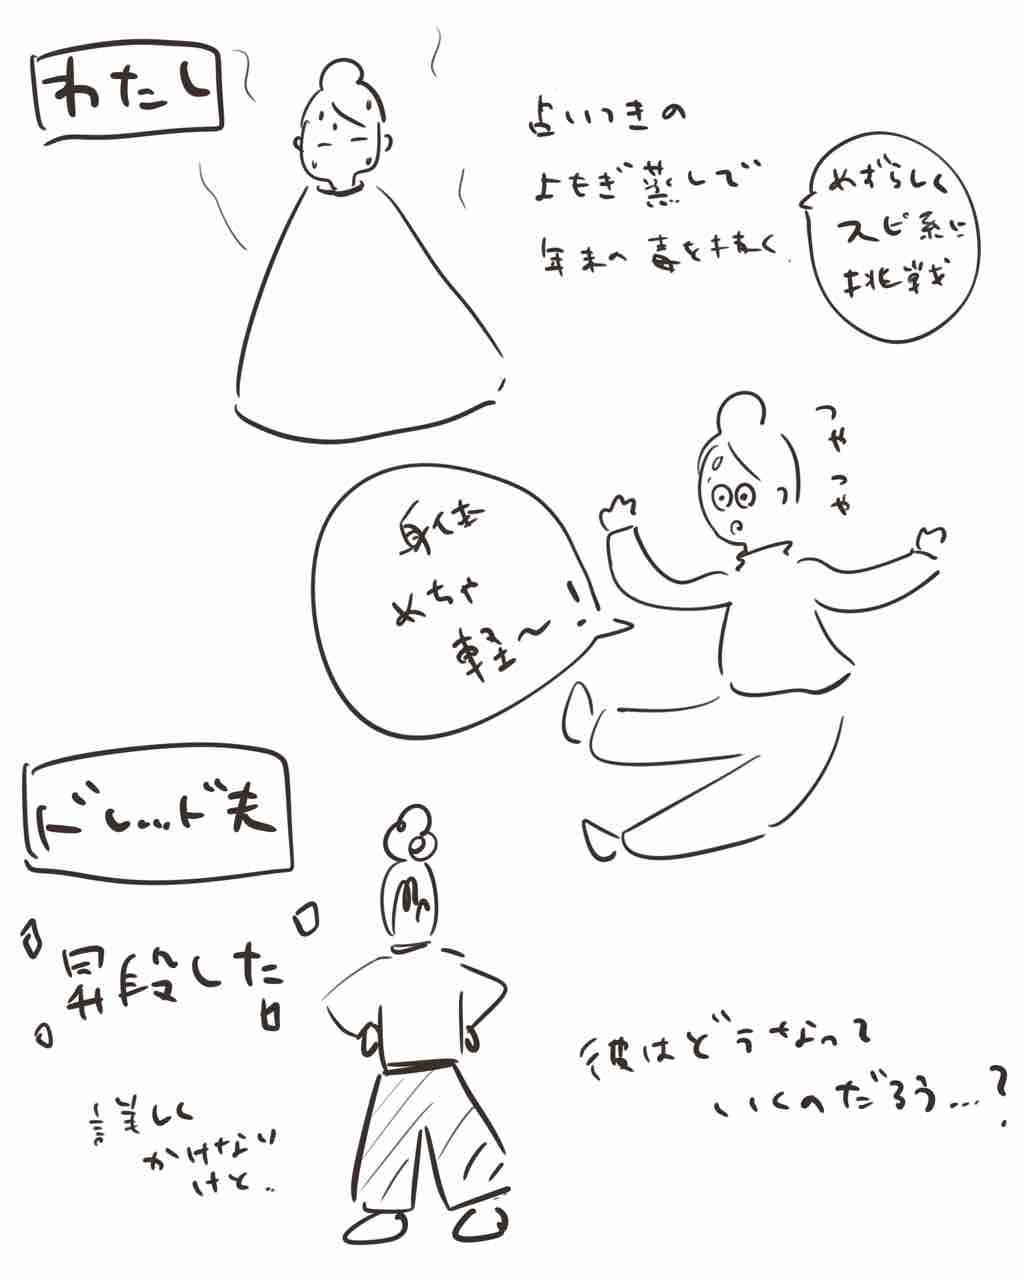 わたし
占いつきの
よもぎ蒸しで
年末の毒を抜く
めずらしく
スピ系に
挑戦
つやつや
身体
めちゃ
軽〜!
ドレッド夫
昇段した
詳しく
かけない
けど..
彼はどうなって
いくのだろう...?